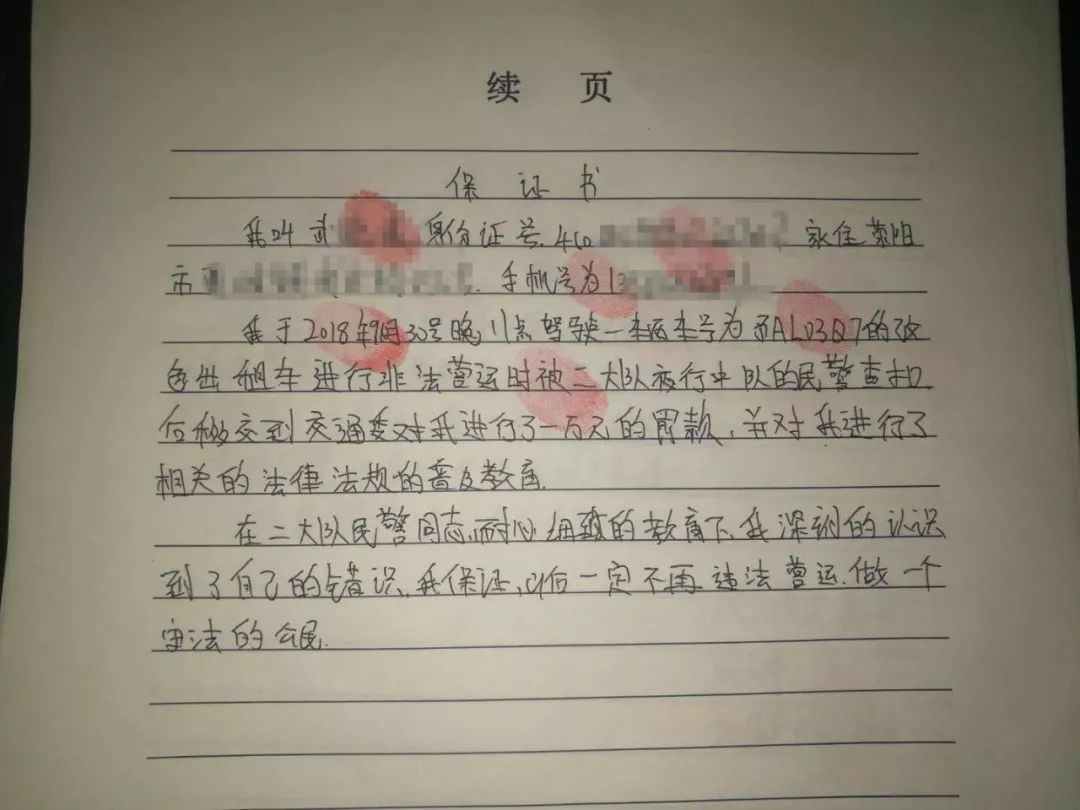 续 页
保 证 书
我叫武 身份证号 410 家住荥阳
市 手机号为1
我于2018年9月30号晚11点驾驶一辆车号为 AL03Q7的
色出租车进行非法营运时被二大队夜行中队的民警查扣
后移交到交通委对我进行了一万元的罚款，并对我进行了
相关的法律法规的普及教育.
在二大队民警同志耐心细致的教育下，我深刻的认识
到了自己的错识，我保证，以后一定不再违法营运.做一个
守法的公民.